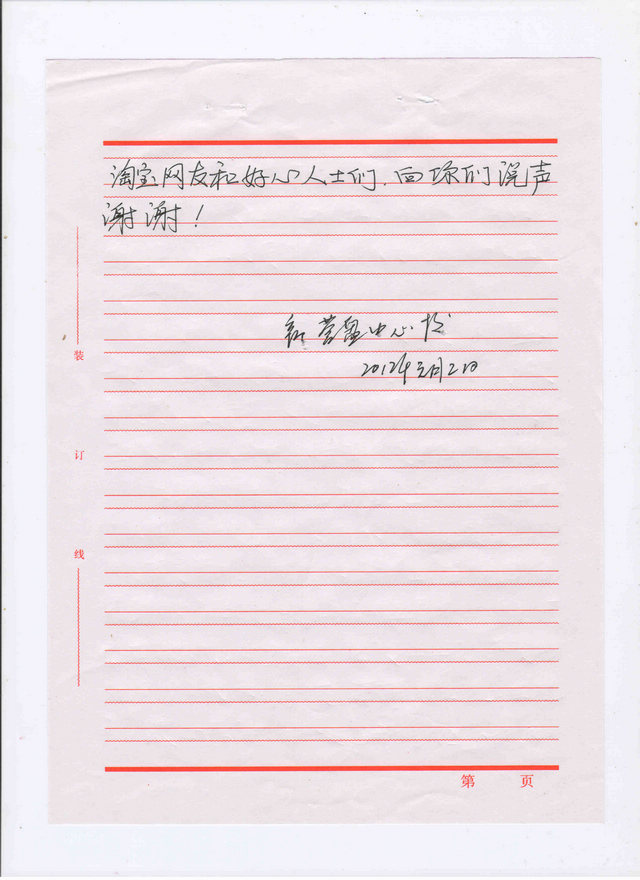 淘宝网友和好心人士们.向你们说声
谢谢!
营盘中心校
2012年元月2日
装
订
线
第 页